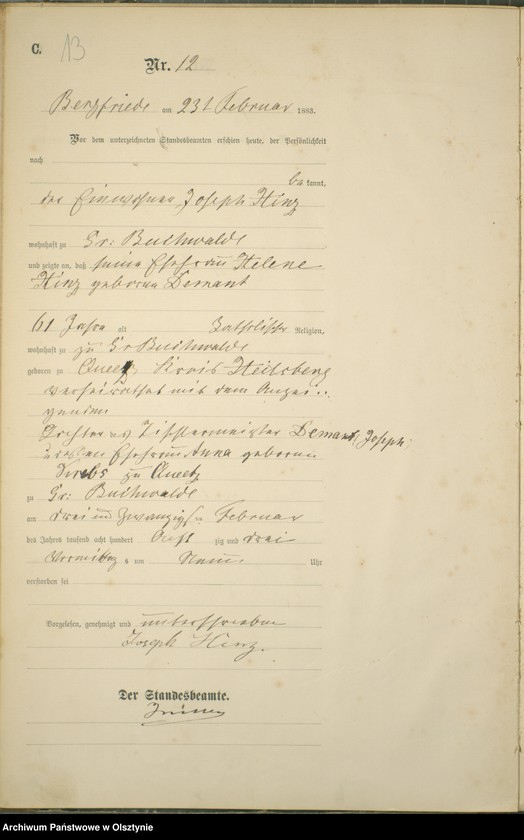 C.
13
Nr. 12
Bergfriede am 23t Februar 1883.
Vor dem unterzeichneten Standesbeamten erschien heute, der Persönlichkeit
nach
bekannt,
der Einwohner Joseph Hinz
wohnhaft zu Gr: Buchwalde
und zeigte an, daß seine Ehefrau Helene
Hinz geborne Demant
61 Jahre alt Katholischer Religion,
wohnhaft zu zu Gr Buchwalde
geboren zu Queetz Kreis Heilsberg
verheirathet mit dem Anzei-
genden
Tochter des Tischlermeister Demant, Joseph
Ehefrau Anna geborne
zu Queetz
zu Gr: Buchwalde
am drei und zwanzigsten Februar
des Jahres tausend acht hundert acht zig und drei
Vormittags um Neun Uhr
verstorben sei
Vorgelesen, genehmigt und unterschrieben
Joseph Hinz.
Der Standesbeamte.
Archiwum Państwowe w Olsztynie